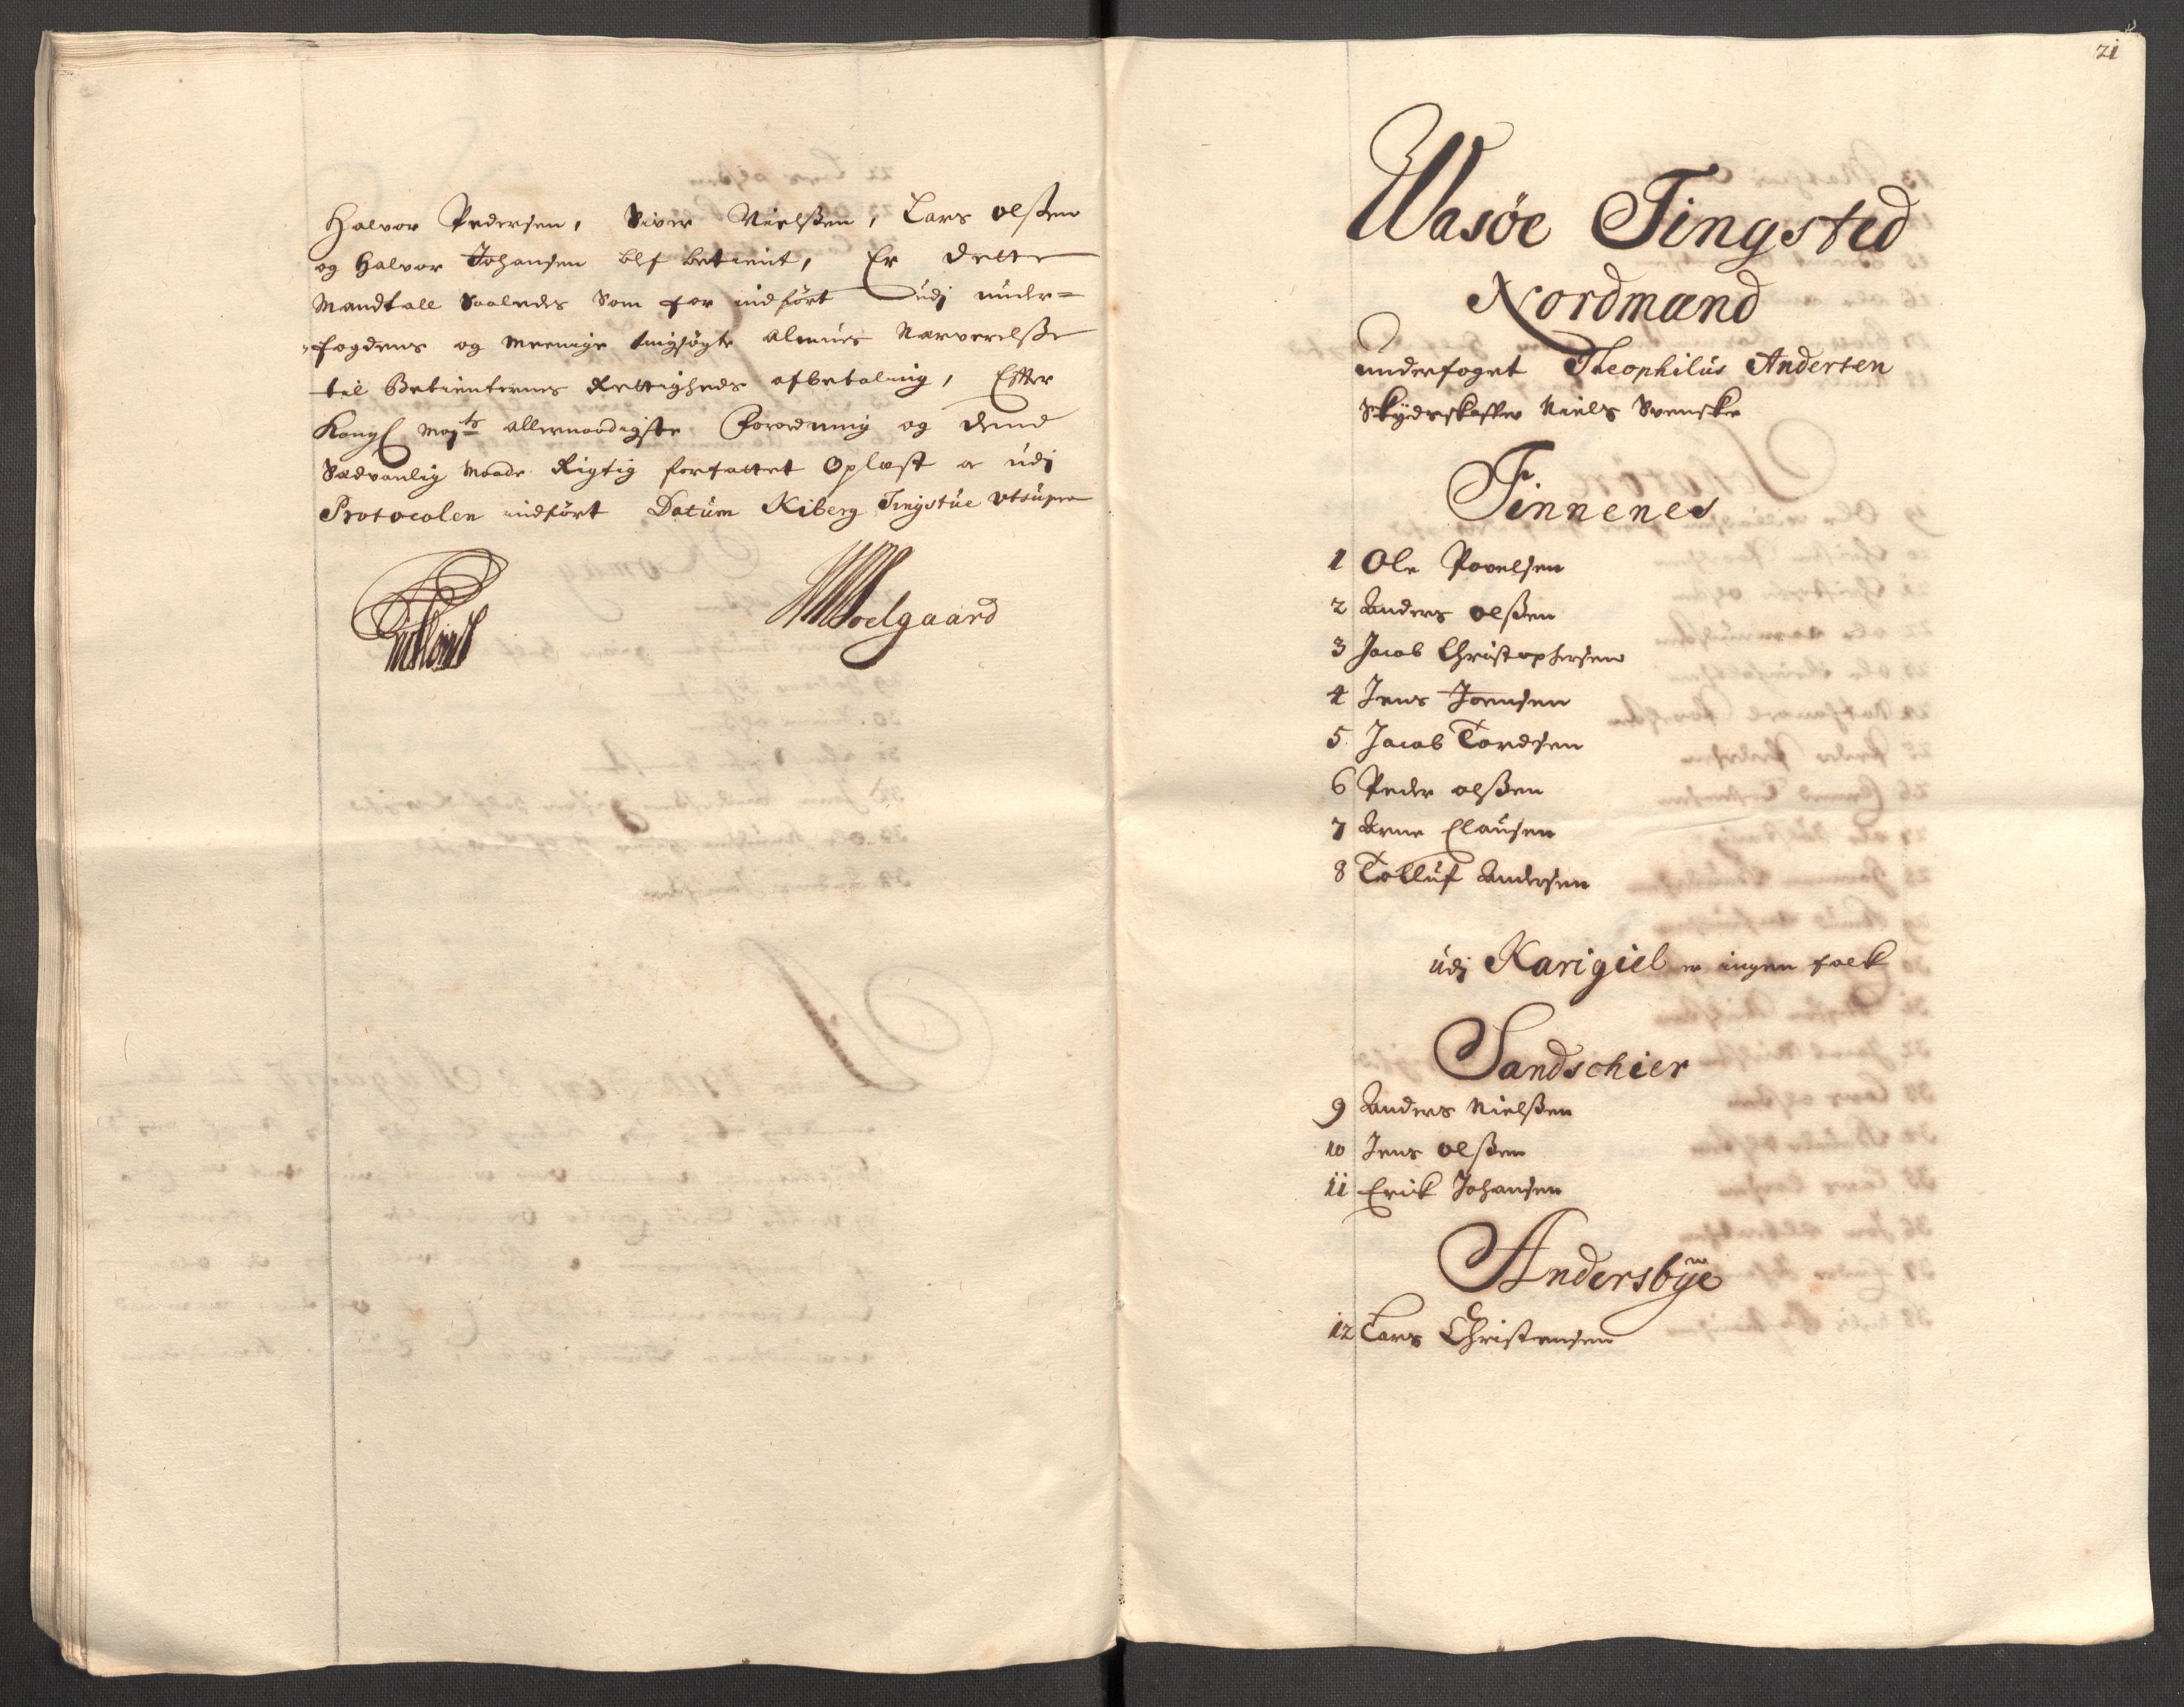 Halvor Pedersen, Siver Nielßen, Lars olßen
og Halvor Johansen blf betient, Er dette
Mandtall Saaledes Som for indført udj under=
fogdens og meenige tingsøgte almues Nærverelße
til Betienternes Rettigheds afbetaling, Effter
Kongl may:ts allernaadigste Forordning og dend
Sædvanlig maade Rigtig forfattet Oplæst og udj
Protocolen indført Datum Kiberg Tingstue utsupra
Soelgaard
21
Wasöe Tingsted
Nordmænd
underfoget Theophilus Andersen
Skydsskaffer Niels Svenske
Finnenes
1 Ole Povelsen
2 Anders olßen
3 Jacob Christophersen
4 Jens Joensen
5 Jacob Tordsen
6 Peder olßen
7 Arne Clausen
8 Tolluf Andersen
udj Karigiel er ingen folk
Sandschier
9 Anders Nielßen
10 Jens olßen
11 Erick Johansen
Andersbÿe
12 Lars Christensen